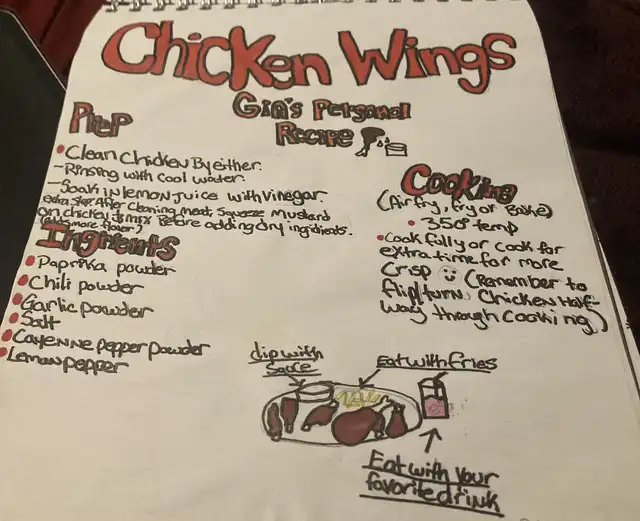 Chicken Wings
Gia's Personal
Recipe
Prep
Clean Chicken By either.
- Rinsing with cool water.
- Soak in lemon juice with vinegar.
extra step: After cleaning meat, squeeze mustard
on chicken & mix Before adding dry ingridients.
(adds more flavor)
Ingrients
Paprika powder
Chili powder
Garlic powder
Salt
Cayenne pepper powder
Lemon pepper
Cooking
(Air fry, fry or Bake)
350° temp
Cook fully or cook for
extra time for more
Crisp (Remember to
flip/turn Chicken Half-
way through cooking)
dip with
sauce
Eat with fries
Eat with your
favorite drink